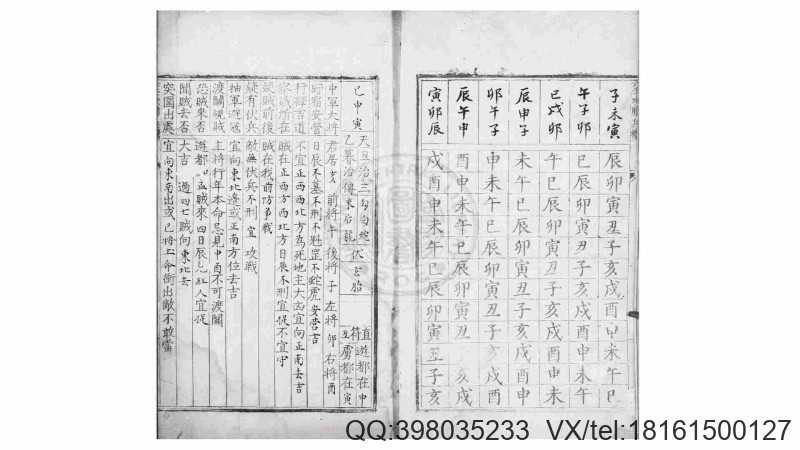 子未寅 辰卯寅丑子亥戌酉申未午巳
午子卯 巳辰卯寅丑子亥戌酉申未午
巳戌卯 午巳辰卯寅丑子亥戌酉申未
辰申子 未午巳辰卯寅丑子亥戌酉申
卯午子 申未午巳辰卯寅丑子亥戌酉
辰午申 酉申未午巳辰卯寅丑亥戌
寅卯辰 戌酉申未午巳辰卯寅丑子亥
巳申寅
伏玄胎
直遊都在申
符
虜都在寅
中軍大將 君居亥 前將午 後將子 左將卯 右將酉
野宿安營 日辰不墓不刑不魁罡不蛇虎安營吉
行師吉道 不宜正西西北方為死地主大凶宜向正南去吉
賊所在 賊在正西方西北方日辰不刑宜促不宜守
賊前後 賊在我前防爭戰
疑有伏兵 敵無伏兵不刑宜攻戰
抽軍避寇 宜向東北逢或正南方位去吉
渡關覘賊 主將行年本命忌見申酉不可渡關
恐賊來否 遊都孟賊來四日辰人宜促
聞賊去否 大吉過四七賊向東北去
突圍出處 宜向東南出或巳將上命衝出敵不敢當
QQ:398035233 VX/tel:18161500127